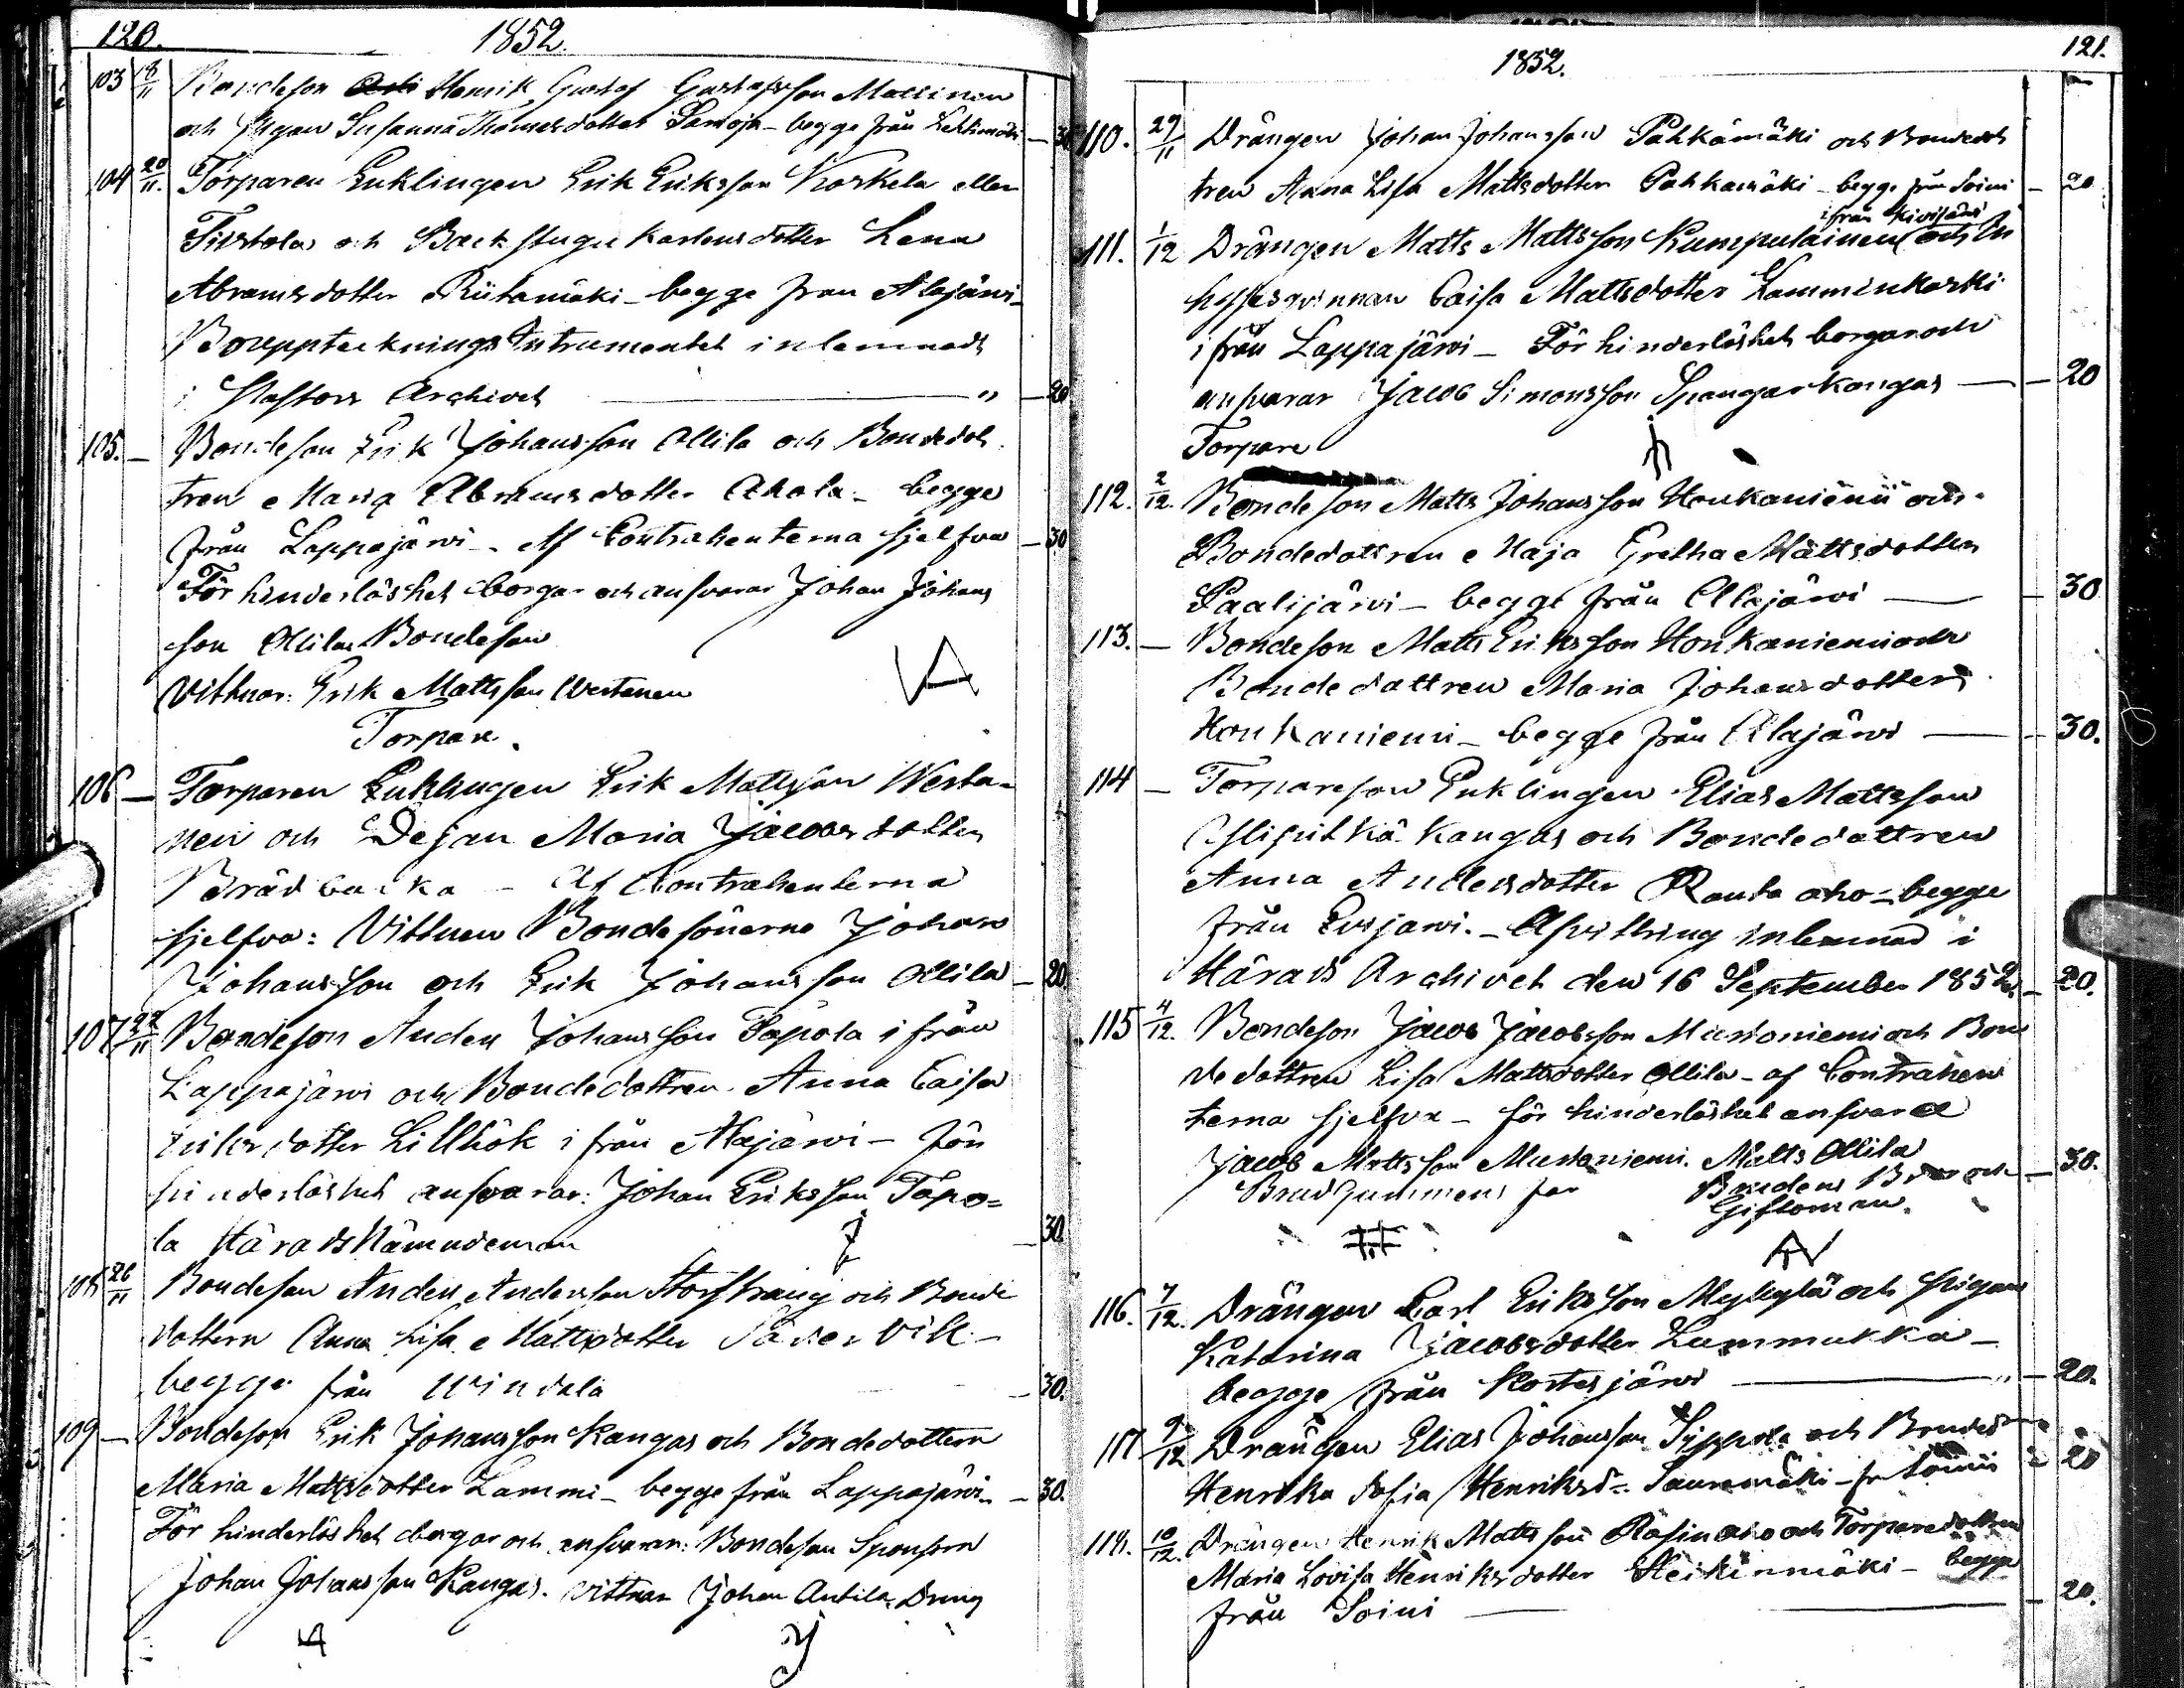 120.
1852.
103 18/11 Bondeson Henrik Gustaf Gustafsson Mallinen
och Pigan Susanna Thomasdotter Samoja - begge från Lehtimäki - 30
104 20/11. Torparen Enklingen Erik Eriksson Koskela eller
Tistola och Backstugukarlens dotter Lena
Abramsdotter Riitamäki - begge från Alajärvi -
Bouppteknings Instrumentet inlemnadt
i Pastors Archivet " - 20
105. - Bondeson Erik Johansson Ollila och Bondedot
tren Maria Abramsdotter Ahola - begge
från Lappajärvi - Af Contrahenterna sjelfva - 30
För hinderlöshet borgar och ansvarar Johan Johans
son Ollila Bondeson
Vittnar: Erik Mattsson Westanen
Torpare.
106 - Torparen Enklingen Erik Mattsson Westa-
nen och Dejan Maria Jacobsdotter
Brådbacka - Af Contrahenterna
sjelfva: Vittnen Bondesönerne Johan
Johansson och Erik Johansson Ollila - 20.
107 22/11 Bondeson Anders Johansson Tapola ifrån
Lappajärvi och Bondedottren Anna Caisa
Eriksdotter Lillhök ifrån Alajärvi - för
hinderlöshet ansvarar: Johan Eriksson Tapo=
la Härads Nämndeman - 30.
108 26/11 Bondeson Anders Andersson Storstrang och Bonde
dottern Anna Lisa Mattsdotter Södervik -
begge från Windala - 30.
109 - Bondeson Erik Johansson Kangas och Bondedottern
Maria Mattsdotter Lammi - begge från Lappajärvi - 30.
För hinderlöshet borgar och ansvarar: Bondeson Sponsorn
Johan Johansson Kangas. vittnar Johan Antila Dreng
1852.
121.
110. 29/11 Drängen Johan Johansson Pahkamäki och Bondedot
tren Anna Lisa Mattsdotter Pahkamäki - begge från Soini - 20
ifrån Kivijärvi
111. 1/12 Drängen Matts Mattsson Kumpulainen och In
hyseqvinnan Caisa Mattsdotter Lamminkoski
ifrån Lappajärvi - För hinderlöshet borgar och
ansvarar Jacob Simonsson Spangarkangas - 20
Torpare
112. 2/12. Bondeson Matts Johansson Honkaniemi och
Bondedottren Maja Gretha Mattsdotter
Paalijärvi - begge från Alajärvi - 30
113. - Bondeson Matts Eriksson Honkaniemi och
Bondedottren Maria Johansdotter
Honkaniemi - begge från Alajärvi - 30.
114 - Torpareson Enklingen Elias Mattsson
kangas och Bondedottren
Anna Andersdotter Rauta aho - begge
från Evijärvi. - Afvittring inlemnad i
Härads Archivet den 16 September 1852. - 20.
115 4/12. Bondeson Jacob Jacobsson Mustaniemi och Bon
dedottren Lisa Mattsdotter Ollila - af Contrahen
terna sjelfva - för hinderlöshet ansvara
Jacob Mattsson Mustaniemi. Matts Ollila
Brudgummens far Brudens Bror och - 30.
Giftoman.
116. 7/12. Drängen Carl Eriksson Myllylä och Pigan
Katarina Jacobsdotter Lummukka -
begge från Kortesjärvi " - 20.
117 9/12 Drängen Elias Johansson Sippola och Bonded
Henrika Sofia Henriksd: Saunamäki - fr Soini - 20
118. 10/12. Drängen Henrik Mattsson Räsinaho och Torparedottren
Maria Lovisa Henriksdotter Heikinmäki - begge
från Soini - 20.